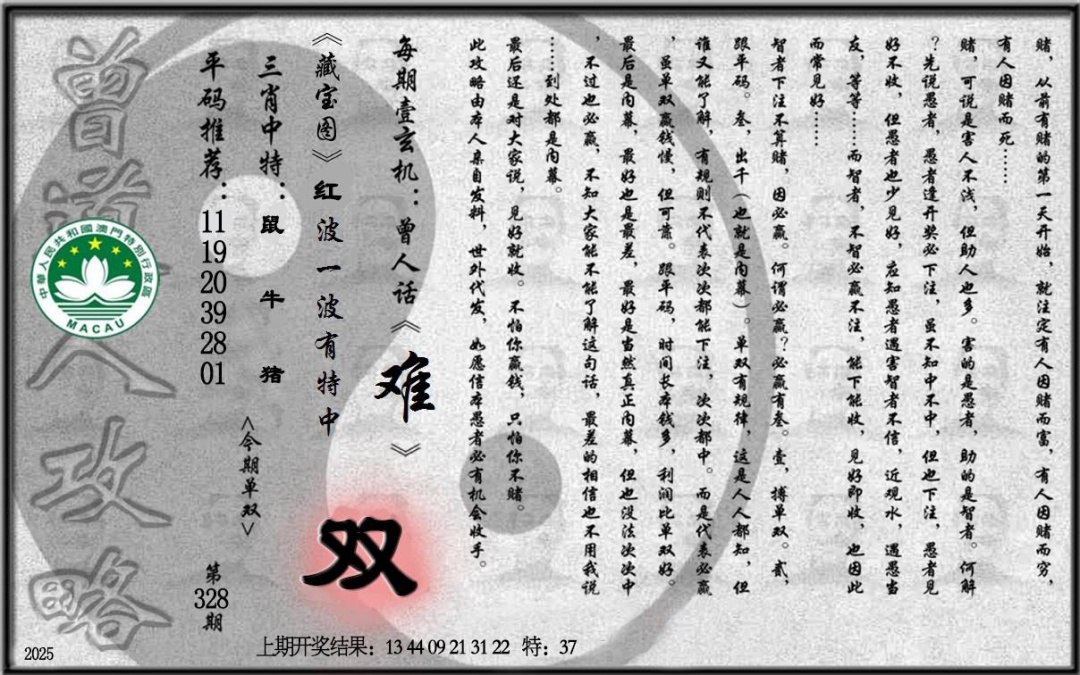 赌，从前有赌的第一天开始，就注定有人因赌而富，有人因赌而穷，
有人因赌而死……
赌，可说是害人不浅，但助人也多。害的是愚者，助的是智者。何解
？先说愚者，愚者逢开奖必下注，虽不知中不中，但也下注，愚者见
好不收，但愚者也少见好，应知愚者遇害智者不信，近观水，遇愚当
友，等等……而智者，不智必赢不注，能下能收，见好即收，也因此
而常见好……
智者下注不算赌，因必赢。何谓必赢？必赢有叁。壹，搏单双。贰，
跟平码。叁，出千（也就是内幕）。单双有规律，这是人人都知，但
谁又能了解，有规则不代表次次都能下注，次次都中。而是代表必赢
，虽单双赢钱慢，但可靠。跟平码，时间长本钱多，利润比单双好。
最后是内幕，最好也是最差，最好是当然真正内幕，但也没法次次中
，不过也必赢，不知大家能不能了解这句话，最差的相信也不用我说
……到处都是内幕。
最后还是对大家说，见好就收。不怕你赢钱，只怕你不赌。
此攻略由本人亲自发料，世外代发，如愿信本愚者必有机会收手。
每期壹玄机：曾人话《难》
《藏宝图》红波一波有特中
双
三肖中特：鼠 牛 猪
<今期单双>
平码推荐：11 19 20 39 28 01
第328期
曾道人攻略
中華人民共和國澳門特別行政區
MACAU
上期开奖结果：13 44 09 21 31 22 特：37
2025